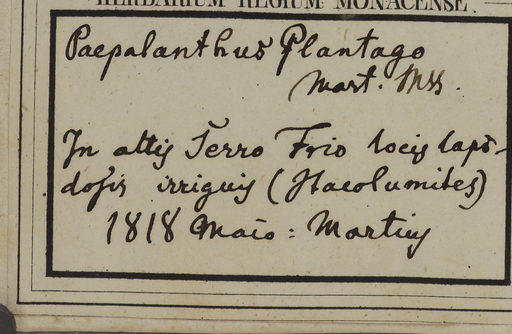 HERBARIUM REGIUM MONACENSE.
Paepalanthus Plantago
Mart. Mss.
In altis Serro Frio locis lapi-
dosis irriguis (Itacolumites)
1818 Maio: Martius